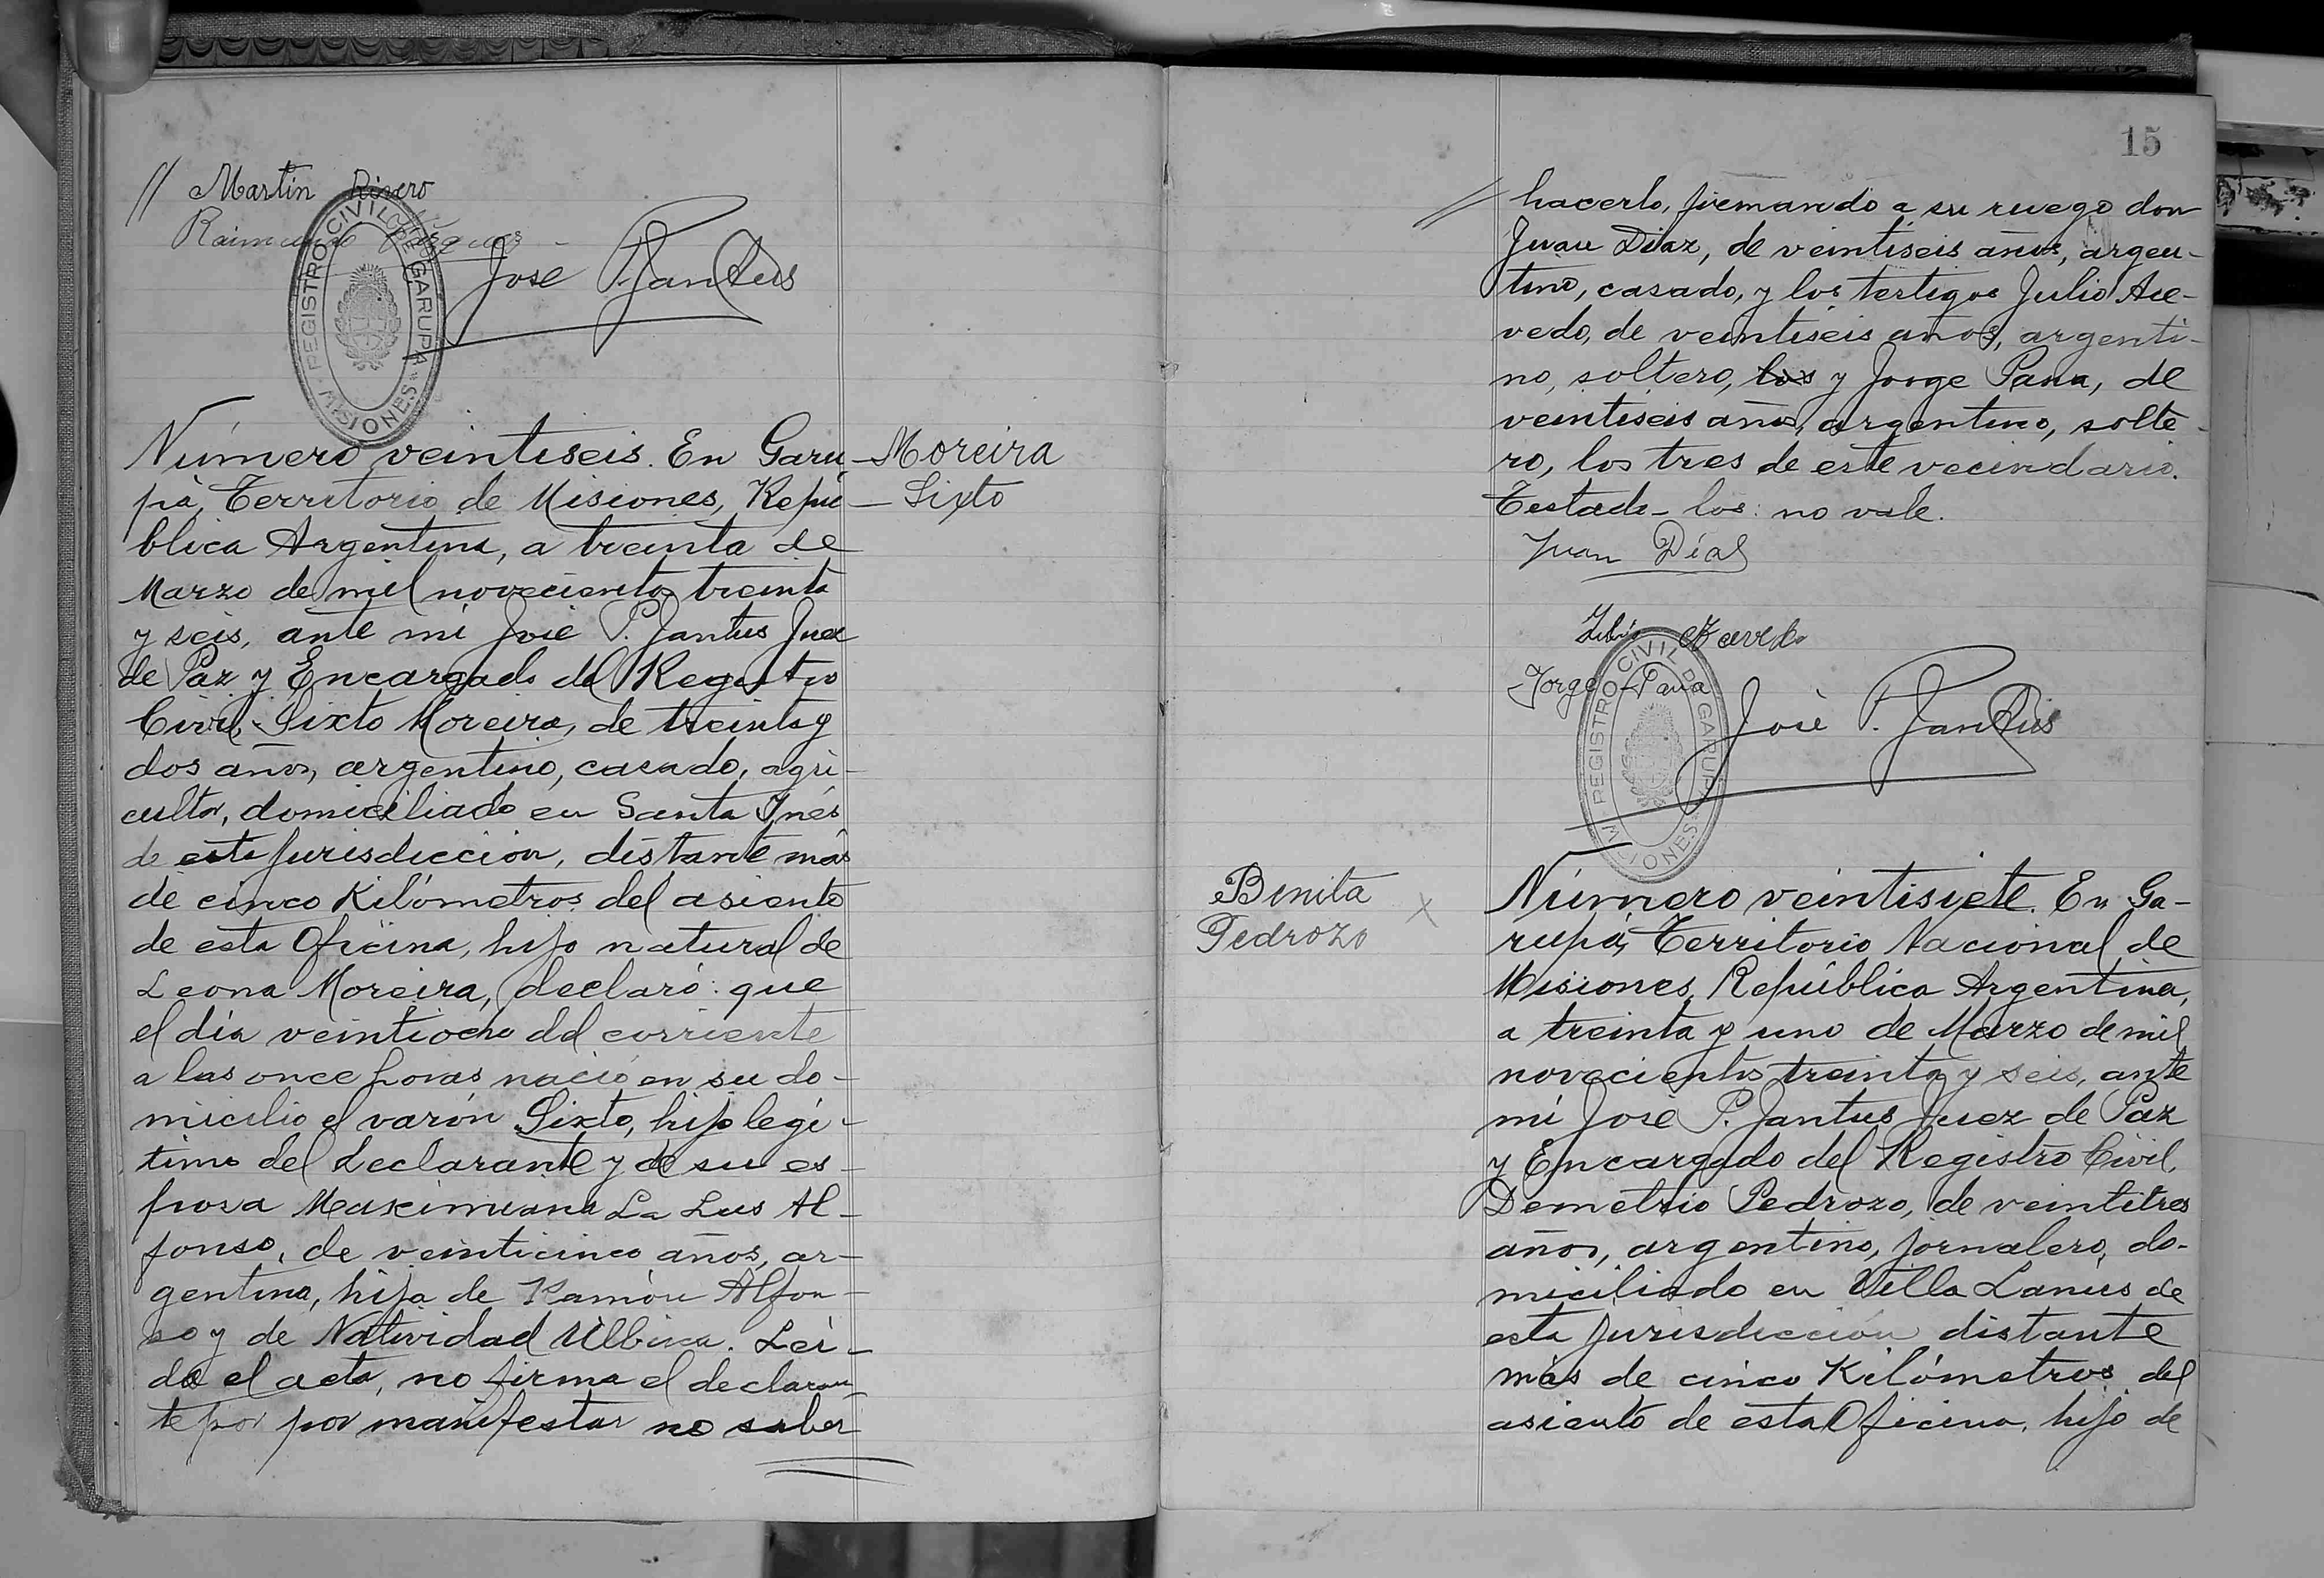 // Martín Rivero
Raimundo
Jose P. Jantus
REGISTRO CIVIL DE GARUPA
MISIONES
Número veintiseis. En Garu-
pá, Territorio de Misiones, Repú-
blica Argentina, a treinta de
Marzo de mil novecientos treinta
y seis, ante mí José P. Jantus Juez
de Paz y Encargado del Registro
Civil, Sixto Moreira, de treinta y
dos años, argentino, casado, agri-
cultor, domiciliado en Santa Inés
de esta jurisdicción, distante más
de cinco Kilómetros del asiento
de esta Oficina, hijo natural de
Leona Moreira, declaró: que
el día veintiocho del corriente
a las once horas nació en su do-
micilio el varón Sixto, hijo legí-
timo del declarante y de su es-
posa Maximiana La Lus Al-
fonso, de veinticinco años, ar-
gentina, hija de Ramón Alfon-
so y de Natividad. Leí-
da el acta, no firma el declaran-
te por por manifestar no saber
Moreira
Sixto
15
// hacerlo, firmando a su ruego don
Juan Diaz, de veintiseis años, argen-
tino, casado, y los testigos Julio Ace-
vedo, de veintiseis años, argenti-
no, soltero, los y Jorge Pana, de
veintiseis años, argentino, solte-
ro, los tres de este vecindario.
Testado - los: no vale.
Juan Días
Jorge Pana
José P. Jantus
REGISTRO CIVIL DE GARUPA
MISIONES
Benita
Pedrozo
X
Número veintisiete. En Ga-
rupá, Territorio Nacional de
Misiones, República Argentina,
a treinta y uno de Marzo de mil
novecientos treinta y seis, ante
mí José P. Jantus Juez de Paz
y Encargado del Registro Civil,
Demetrio Pedrozo, de veintitres
años, argentino, jornalero, do-
miciliado en Villa Lanús de
esta jurisdicción distante
más de cinco Kilómetros del
asiento de esta Oficina, hijo de